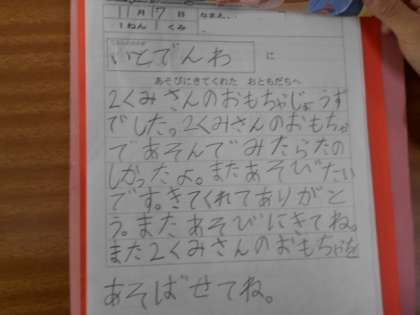 11月7日 なまえ
1ねん くみ
いとでんわ に
あそびにきてくれた おともだちへ
2くみさんのおもちゃじょうず
でした。2くみさんのおもちゃ
であそんでみたらたの
しかったよ。またあそびたい
です。きてくれてありがと
う。またあそびにきてね。
また2くみさんのおもちゃを
あそばせてね。